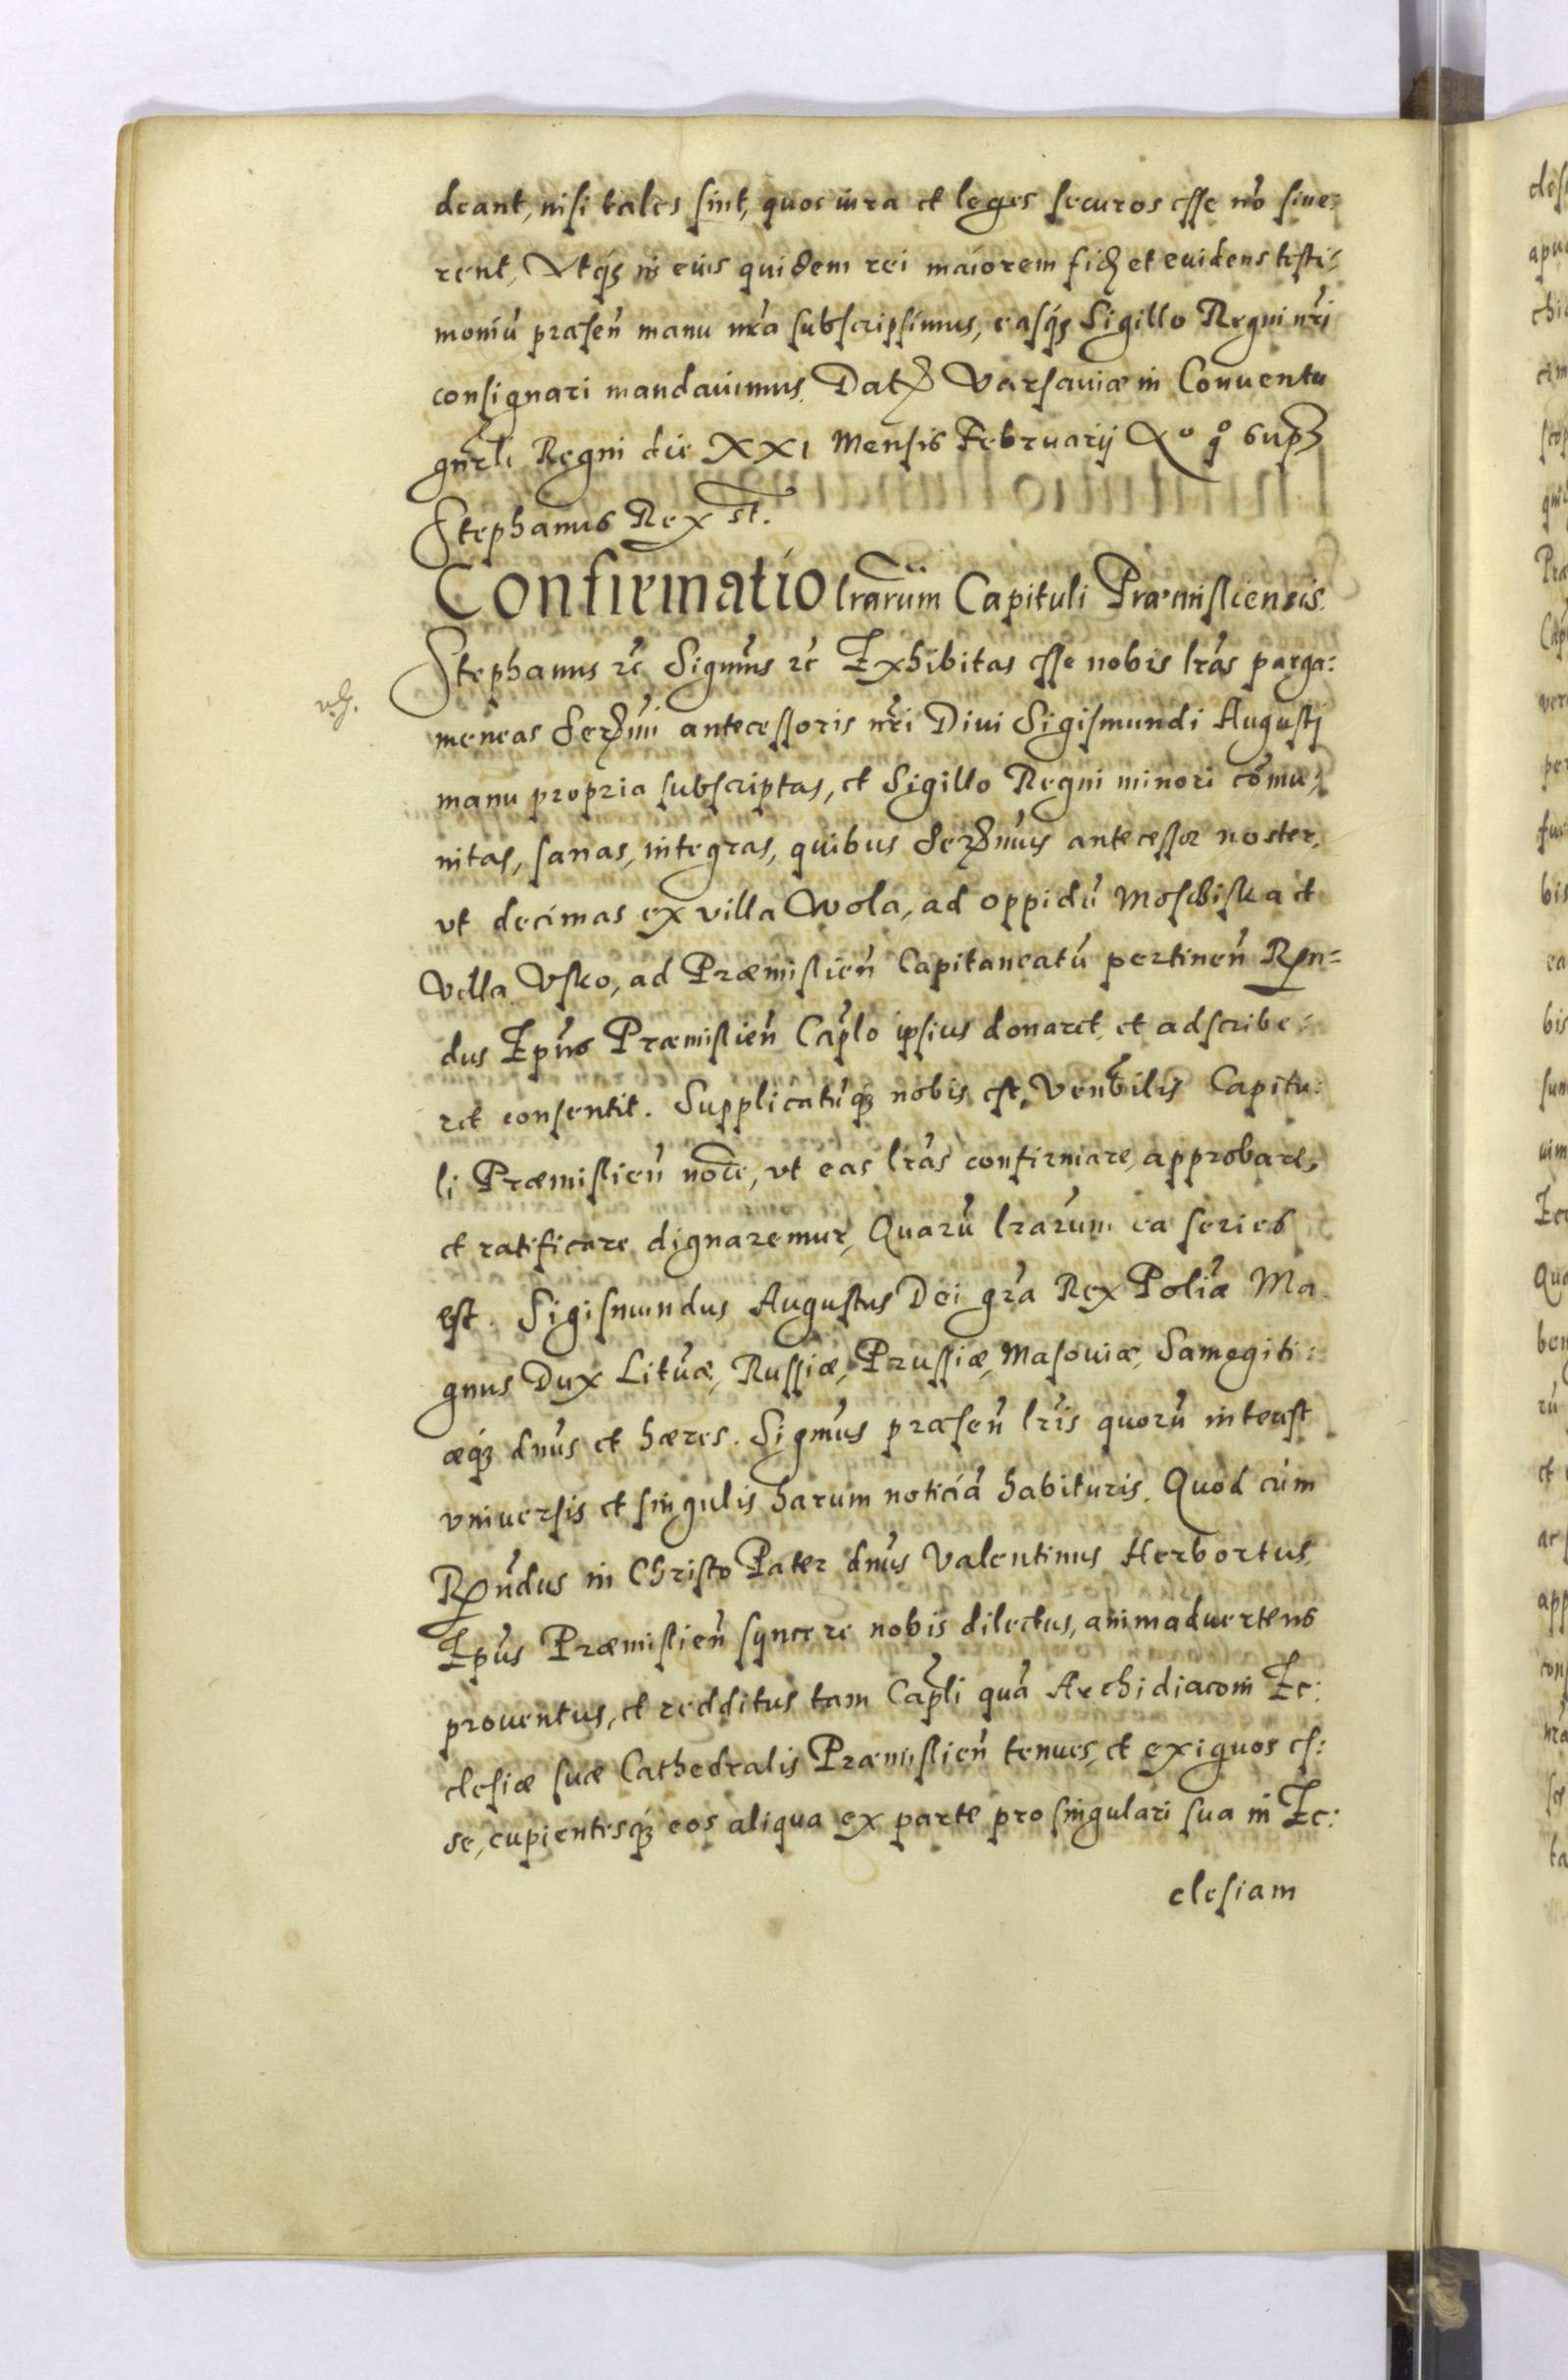 deant, nisi tales sint, quos iura et leges securos esse nõ sine:
rent, Vtqꝫ in eius quidem rei maiorem fidꝫ et euidens testi:
moniũ præseñ manu nr̃a subscripsimus, easqꝫ Sigillo Regni nr̃i
consignari mandauimus. Datꝫ Varsauiæ in Conuentu
gnrl̃i Regni die XXI Mensis Februarij Ao qo supꝫ
Stephanus Rex st.
Confirmatio lr̃arum Capituli Præmisliensis.
Stephanus ꝛc̃ Signm̃s ꝛc̃ Exhibitas esse nobis lr̃as parga:
meneas Serꝫmi antecessoris nr̃i Diui Sigismundi Augusti
manu propria subscriptas, et Sigillo Regni minori cõmu:
nitas, sanas, integras, quibus Serꝫmus antecessor noster,
vt decimas ex villa Wola, ad oppidũ Moscbiska et
Villa Vsko, ad Præmislieñ Capitaneatũ pertineñ Rn=
dus Epũs Præmislieñ Capl̃o ipsius donaret, et adscribe:
ret consentit. Supplicatũqꝫ nobis est, Venb̃ilis Capitu:
li Præmislieñ noĩe, vt eas lr̃as confirmare, approbare,
et ratificare dignaremur, Quarũ lr̃arum ea series
est. Sigismundus Augustus Dei gr̃a Rex Polĩæ Ma
gnus Dux Litũæ, Russiæ, Prussiæ, Masouiæ, Samogiti:
æqꝫ dnũs et hæres. Sigmũs præseñ lr̃is quorũ interest
vniuersis et singulis harum noticiã habituris. Quod cùm
Rñdus in Christo Pater dnũs Valentinus Herbortus,
Epũs Præmislieñ syncere nobis dilectus, animaduertens
prouentus, et redditus tam Capl̃i quã Archidiaconi Ec:
clesiæ suæ Cathedralis Præmislieñ tenues, et exiguos es:
se, cupientesqꝫ eos aliqua ex parte pro singulari sua in Ec:
clesiam